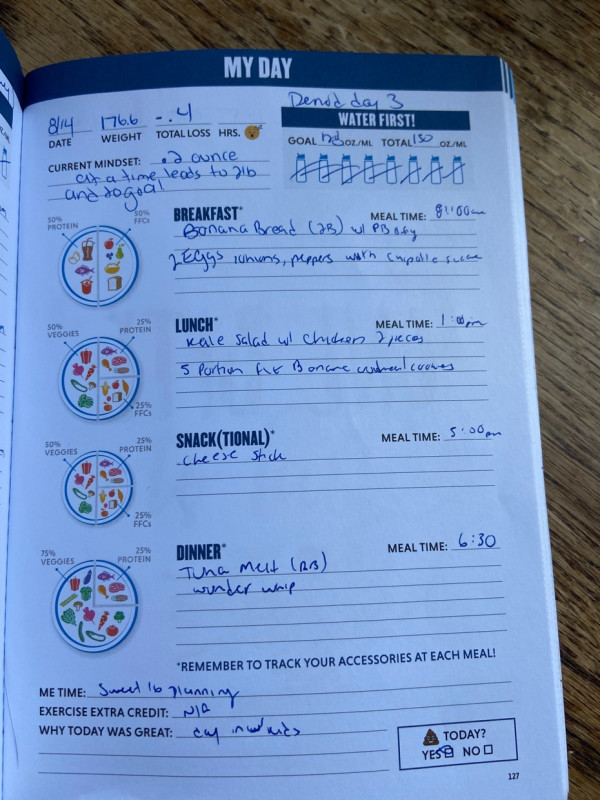 MY DAY
8/14 176.6 -.4 Denod day 3
DATE WEIGHT TOTAL LOSS HRS.
WATER FIRST!
GOAL OZ/ML TOTAL 150 OZ/ML
CURRENT MINDSET: .2 ounce
at a time leads to 2lb
and to goal
50% PROTEIN
50% FFCs
BREAKFAST* MEAL TIME: 8:00am
Banana Bread (2B) w/ PB
2 Eggs peppers with chipotle sauce
50% VEGGIES
25% PROTEIN
25% FFCs
LUNCH* MEAL TIME: 1:00pm
Kale Salad w/ Chicken 2 pieces
5 Portion Banana cookies
50% VEGGIES
25% PROTEIN
25% FFCs
SNACK(TIONAL)* MEAL TIME: 5:00pm
Cheese Stick
75% VEGGIES
25% PROTEIN
DINNER* MEAL TIME: 6:30
Tuna Melt
wunder whip
*REMEMBER TO TRACK YOUR ACCESSORIES AT EACH MEAL!
ME TIME: Sweet 16 planning
EXERCISE EXTRA CREDIT: N/A
WHY TODAY WAS GREAT: day kids
TODAY?
YES NO
127